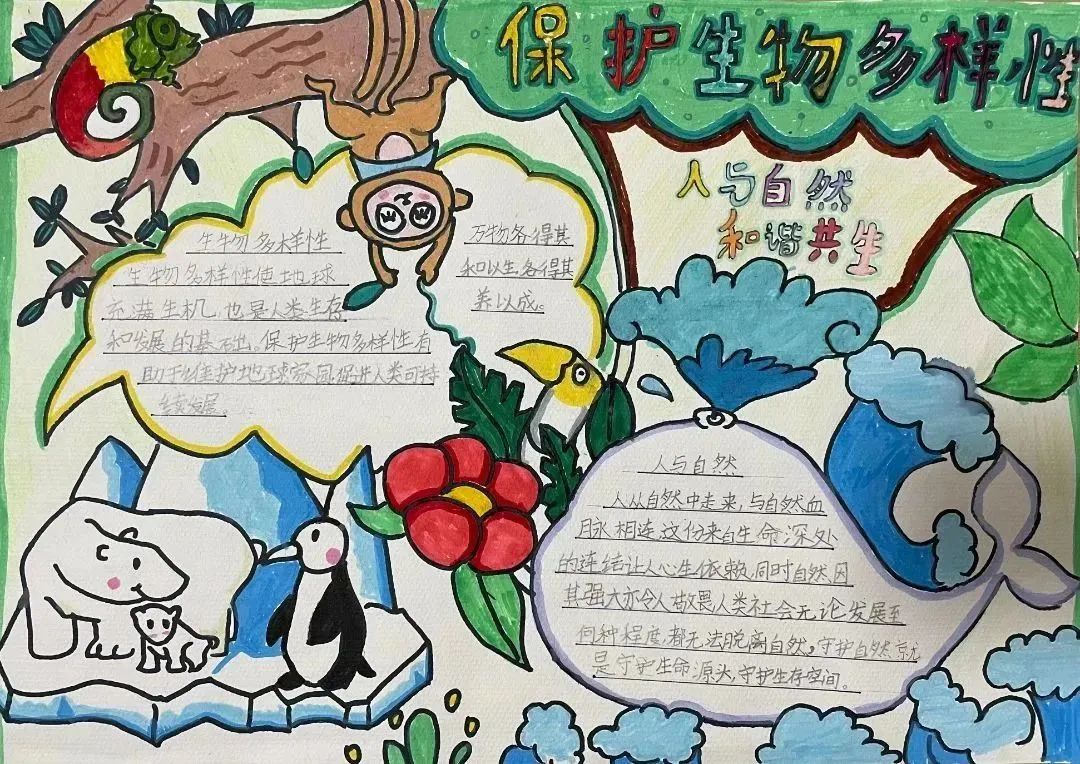 保护生物多样性
人与自然
和谐共生
生物多样性
生物多样性使地球
充满生机,也是人类生存
和发展的基础。保护生物多样性有
助于维护地球家园,促进人类可持
续发展。
万物各得其
和以生各得其
养以成。
人与自然
人从自然中走来,与自然血
脉相连这份来自生命深处
的连结让人心生依赖,同时自然因
其强大亦令人敬畏人类社会无论发展至
何种程度,都无法脱离自然,守护自然就
是守护生命源头,守护生存空间。